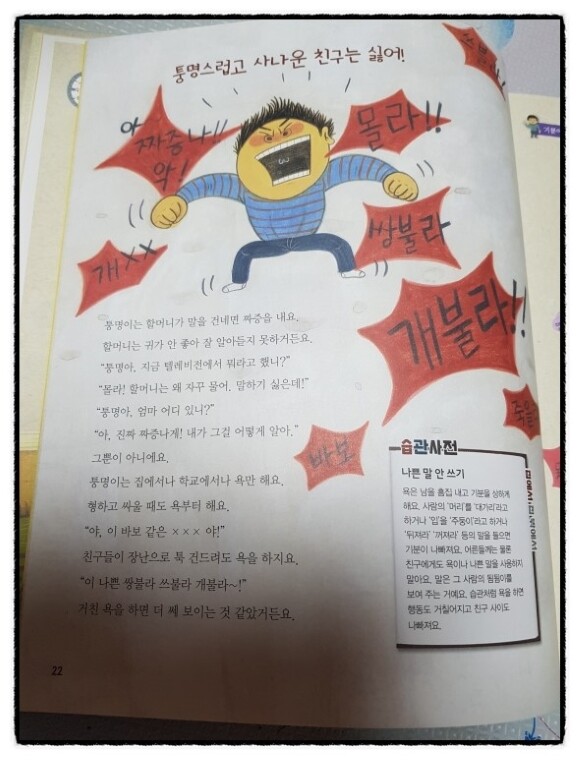 퉁명스럽고 사나운 친구는 싫어!
아 짜증나!!
악!
몰라!!
개××
쌍불라
개불라!!
바보
퉁명이는 할머니가 말을 건네면 짜증을 내요.
할머니는 귀가 안 좋아 잘 알아듣지 못하거든요.
“퉁명아, 지금 텔레비전에서 뭐라고 했니?”
“몰라! 할머니는 왜 자꾸 물어. 말하기 싫은데!”
“퉁명아, 엄마 어디 있니?”
“아, 진짜 짜증나게! 내가 그걸 어떻게 알아.”
그뿐이 아니에요.
퉁명이는 집에서나 학교에서나 욕만 해요.
형하고 싸울 때도 욕부터 해요.
“야, 이 바보 같은 ××× 야!”
친구들이 장난으로 툭 건드려도 욕을 하지요.
“이 나쁜 쌍불라 쓰불라 개불라~!”
거친 욕을 하면 더 쎄 보이는 것 같았거든요.
습관사전
나쁜 말 안 쓰기
욕은 남을 흠집 내고 기분을 상하게
해요. 사람의 '머리'를 '대가리'라고
하거나 '입'을 '주둥이'라고 하거나
'뒤져라' '꺼져라' 등의 말을 들으면
기분이 나빠져요. 어른들께는 물론
친구에게도 욕이나 나쁜 말을 사용하지
말아요. 말은 그 사람의 됨됨이를
보여 주는 거예요. 습관처럼 욕을 하면
행동도 거칠어지고 친구 사이도
나빠져요.
22